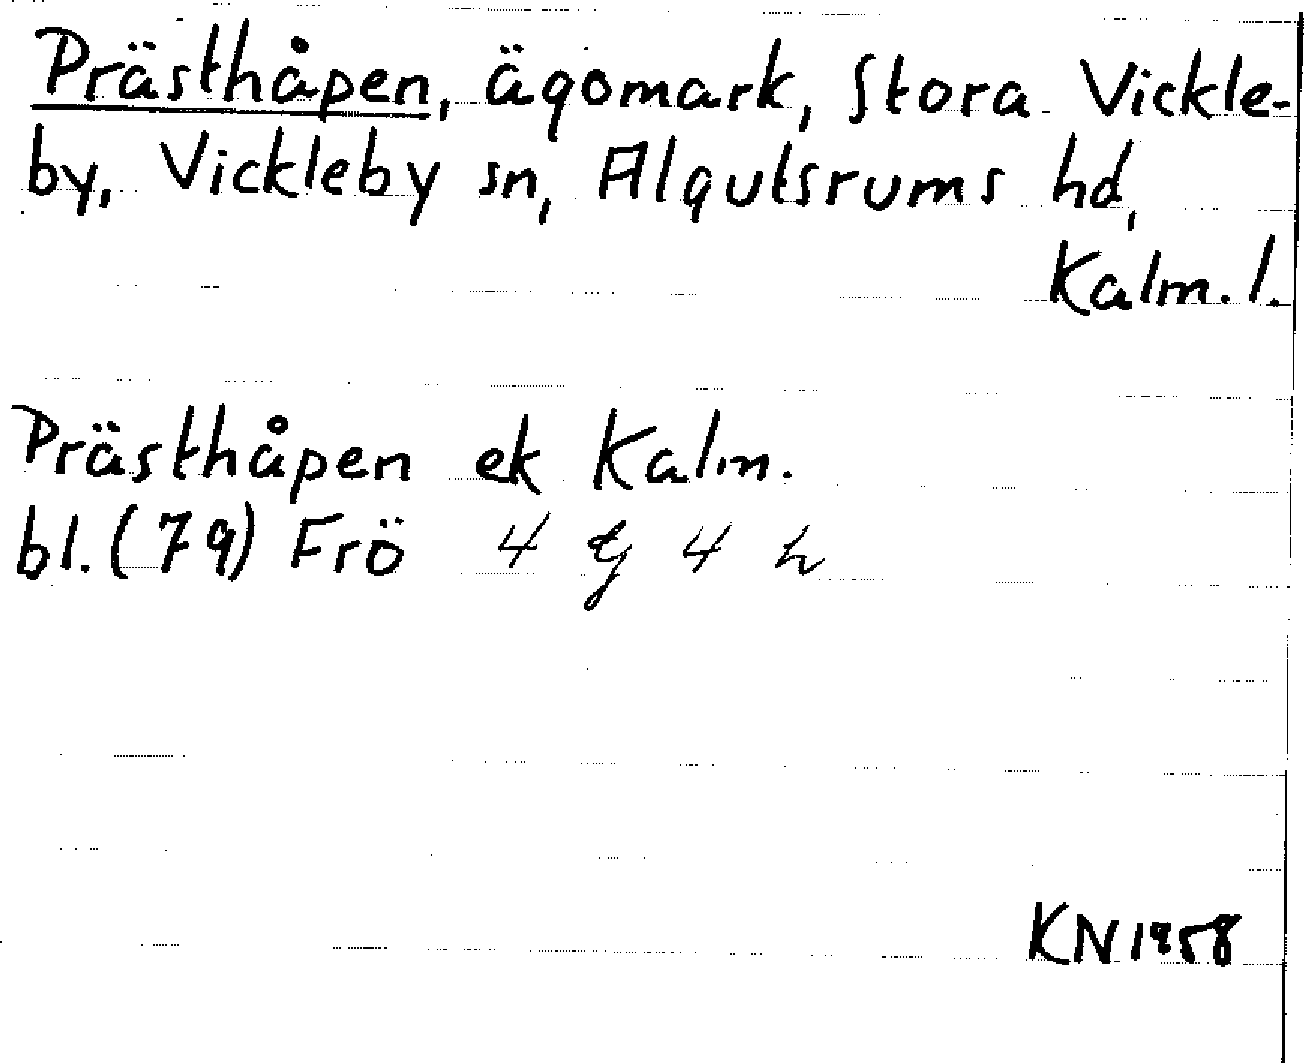 Prästhåpen, ägomark, Stora Vickle-
by, Vickleby sn, Algutsrums hd,
Kalm. l.
Prästhåpen ek Kalm.
bl. (79) Frö 4 g 4 h
KN 1958